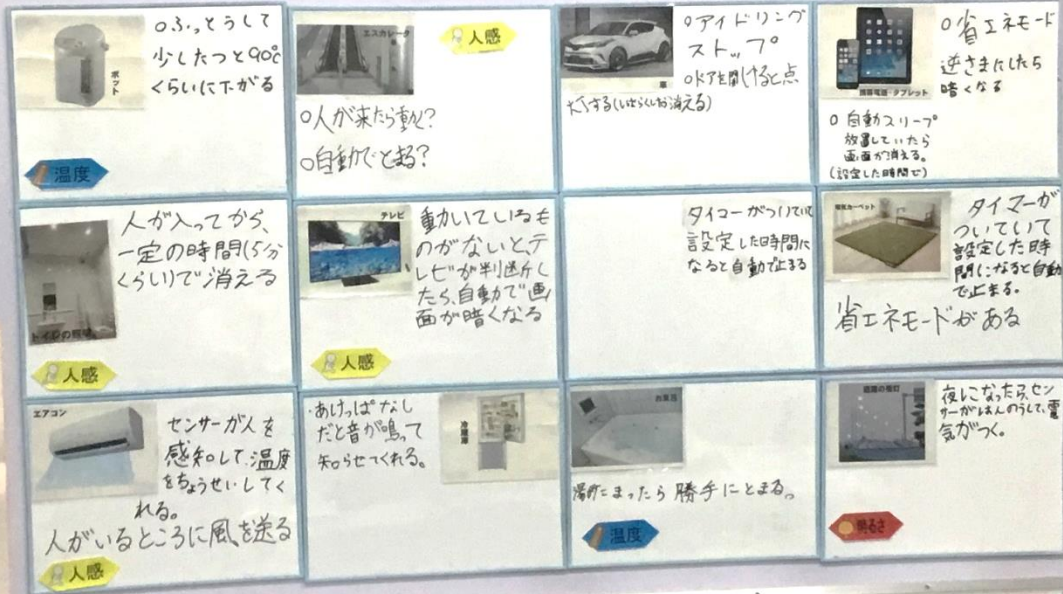 ○ふっとうして
少したつと90℃
くらいに下がる
ポット
温度
エスカレータ
人感
○人が来たら動く?
○自動でとまる?
○アイドリング
ストップ
○ドアを開けると点
灯する(しばらくしたら消える)
車
○省エネモード
逆さまにしたら
暗くなる
携帯電話・タブレット
○自動スリープ
放置していたら
画面が消える。
(設定した時間で)
人が入ってから、
一定の時間(5分
くらい)で消える
トイレの照明
人感
テレビ
動いているも
のがないと、テ
レビが判断し
たら、自動で画
面が暗くなる
人感
タイマーがついていて
設定した時間に
なると自動で止まる
電気カーペット
タイマーが
ついていて
設定した時
間になると自動
で止まる。
省エネモードがある
エアコン
センサーが人を
感知して、温度
をちょうせいしてく
れる。
人がいるところに風を送る
人感
あけっぱなし
だと音が鳴って
知らせてくれる。
冷蔵庫
お風呂
湯がたまったら勝手にとまる。
温度
夜になったら、セン
サーがはんのうして、電
気がつく。
明るさ